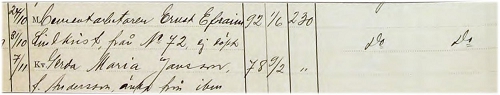 24/10 M. Cementarbetaren Ernst Efraim 92 1/6 230
31/10 Lindkvist, från No 72, ej döpt Do Do
7/11 Kv. Gerda Maria Jansson, 78 9/2 "
f. Andersson, änka från ibm